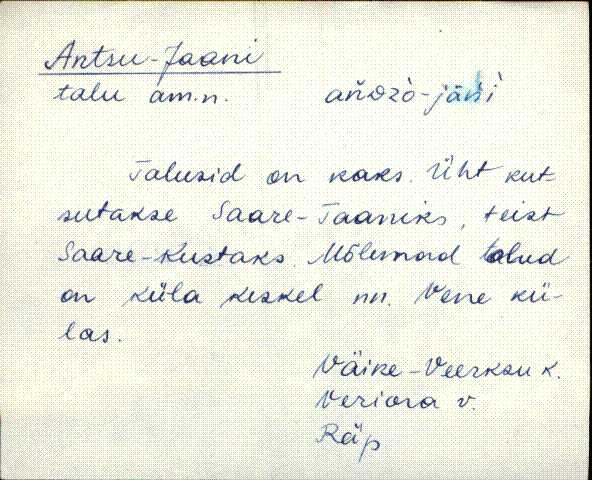 Antsu-Jaani
talu am.n. añDzò-jāńi
Talusid on kaks. Üht kut-
sutakse Saare-Jaaniks, teist
Saare-Kustaks. Mõlemad talud
on küla keskel nn. Vene kü-
las.
Väike-Veerksu k.
Veriora v.
Räp